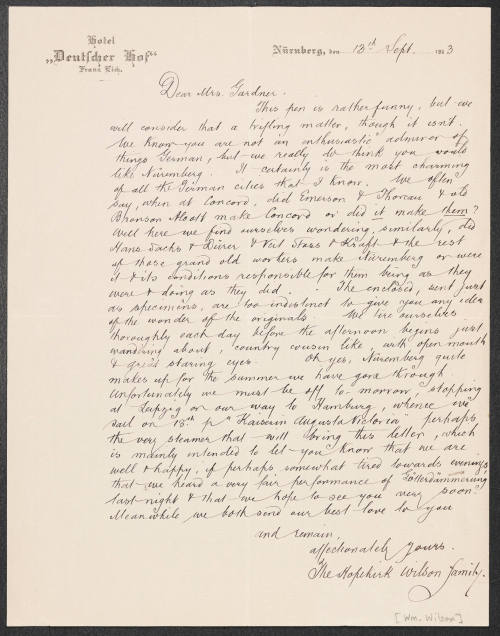 Hotel
„Deutscher Hof“
Franz Eich.
Nürnberg, den 13th Sept. 1893
Dear Mrs. Gardner.
This pen is rather funny, but we
will consider that a trifling matter, though it isn't.
We know you are not an enthusiastic admirer of
things German, but we really do think you would
like Nüremberg. It certainly is the most charming
of all the German cities that I know. We often
say, when at Concord, did Emerson & Thoreau & old
Bronson Alcott make Concord or did it make them?
Well here we find ourselves wondering, similarly, did
Hans Sachs & Dürer & Veit Stoss & Kraft & the rest
of those grand old workers make Nüremberg or were
it & its conditions responsible for them being as they
were & doing as they did. The enclosed, sent just
as specimens, are too indistinct to give you any idea
of the wonder of the originals. We tire ourselves
thoroughly each day before the afternoon begins just
wandering about, country cousin like, with open mouth
& great staring eyes. Oh yes, Nüremberg quite
makes up for the summer we have gone through.
Unfortunately we must be off to morrow, stopping
at Leipzig on our way to Hamburg, whence we
sail on 18th pr "Kaiserin Augusta Victoria" perhaps
the very steamer that will bring this letter, which
is mainly intended to let you know that we are
well & happy, if perhaps somewhat tired towards evenings
that we heard a very fair performance of Götterdämmerung
last night & that we hope to see you very soon.
Meanwhile we both send our best love to you
and remain,
affectionately yours.
The Hopekirk Wilson family.
[Wm. Wilson]